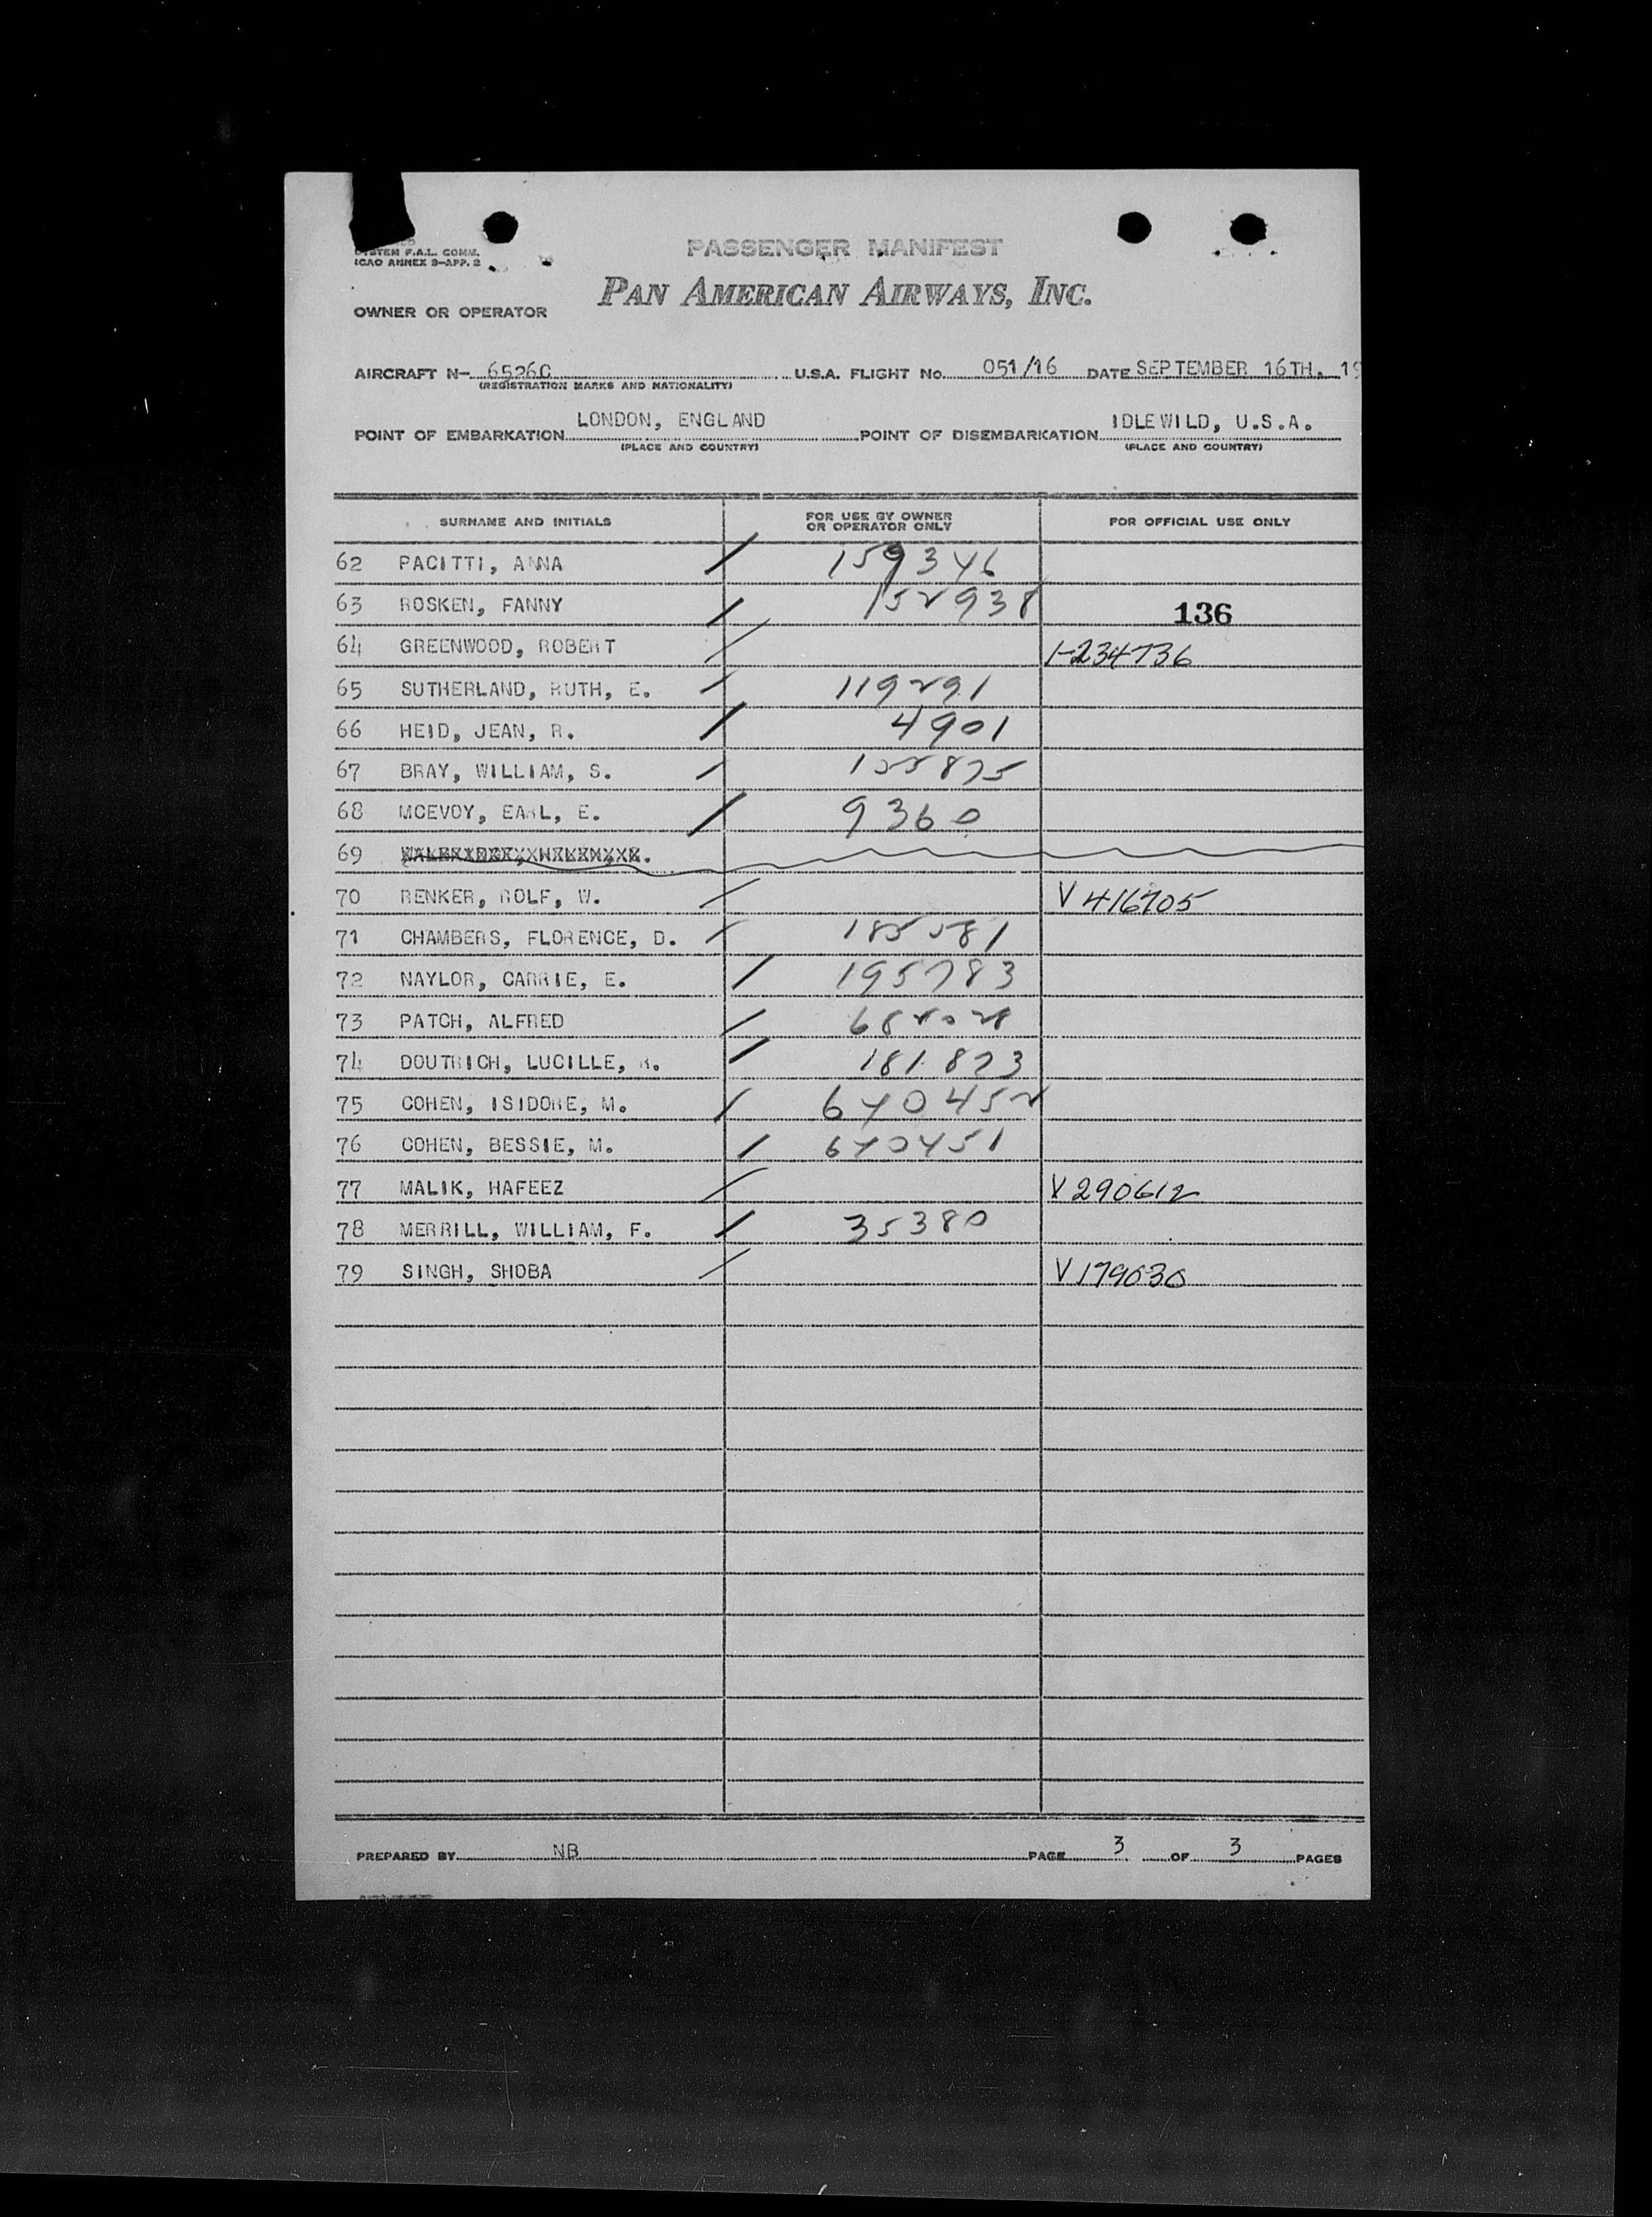 SYSTEM F.A.L. COMM.
ICAO ANNEX 9-APP. 2
PASSENGER MANIFEST
PAN AMERICAN AIRWAYS, INC.
OWNER OR OPERATOR
AIRCRAFT N- 6526C U.S.A. FLIGHT No. 051/16 DATE SEPTEMBER 16TH. 19
(REGISTRATION MARKS AND NATIONALITY)
POINT OF EMBARKATION LONDON, ENGLAND POINT OF DISEMBARKATION IDLEWILD, U.S.A.
(PLACE AND COUNTRY) (PLACE AND COUNTRY)
SURNAME AND INITIALS FOR USE BY OWNER OR OPERATOR ONLY FOR OFFICIAL USE ONLY
62 PACITTI, ANNA / 159346
63 ROSKEN, FANNY / 152938 136
64 GREENWOOD, ROBERT / 1-234736
65 SUTHERLAND, RUTH, E. / 119291
66 HEID, JEAN, R. / 4901
67 BRAY, WILLIAM, S. /
68 MCEVOY, EARL, E. / 9360
69
70 RENKER, ROLF, W. / V 416705
71 CHAMBERS, FLORENCE, D. / 185581
72 NAYLOR, CARRIE, E. / 195783
73 PATCH, ALFRED /
74 DOUTRICH, LUCILLE, R. / 181823
75 COHEN, ISIDORE, M. / 640452
76 COHEN, BESSIE, M. / 640451
77 MALIK, HAFEEZ / V 290612
78 MERRILL, WILLIAM, F. / 35380
79 SINGH, SHOBA / V 179030
PREPARED BY NB PAGE 3 OF 3 PAGES